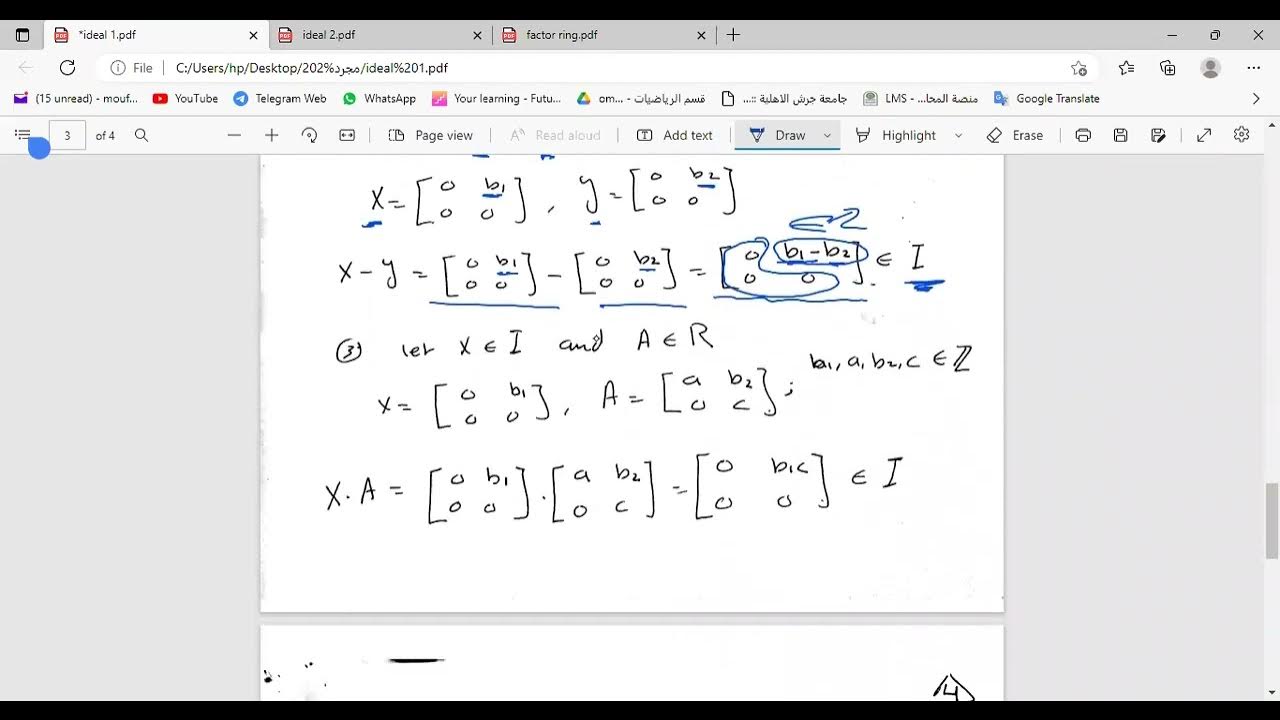 *ideal 1.pdf
ideal 2.pdf
factor ring.pdf
File C:/Users/hp/Desktop/202%مجرد/ideal%201.pdf
(15 unread) - mouf... YouTube Telegram Web WhatsApp Your learning - Futu... om... - قسم الرياضيات جامعة جرش الاهلية ::... LMS - منصة المحا... Google Translate
3 of 4 Page view Read aloud Add text Draw Highlight Erase
X = [0 b₁; 0 0], y = [0 b₂; 0 0]
∈ Z
X - y = [0 b₁; 0 0] - [0 b₂; 0 0] = [0 b₁-b₂; 0 0] ∈ I
③ let X ∈ I and A ∈ R
X = [0 b₁; 0 0], A = [a b₂; 0 c]; b₁, a, b₂, c ∈ ℤ
X·A = [0 b₁; 0 0]·[a b₂; 0 c] = [0 b₁c; 0 0] ∈ I
4